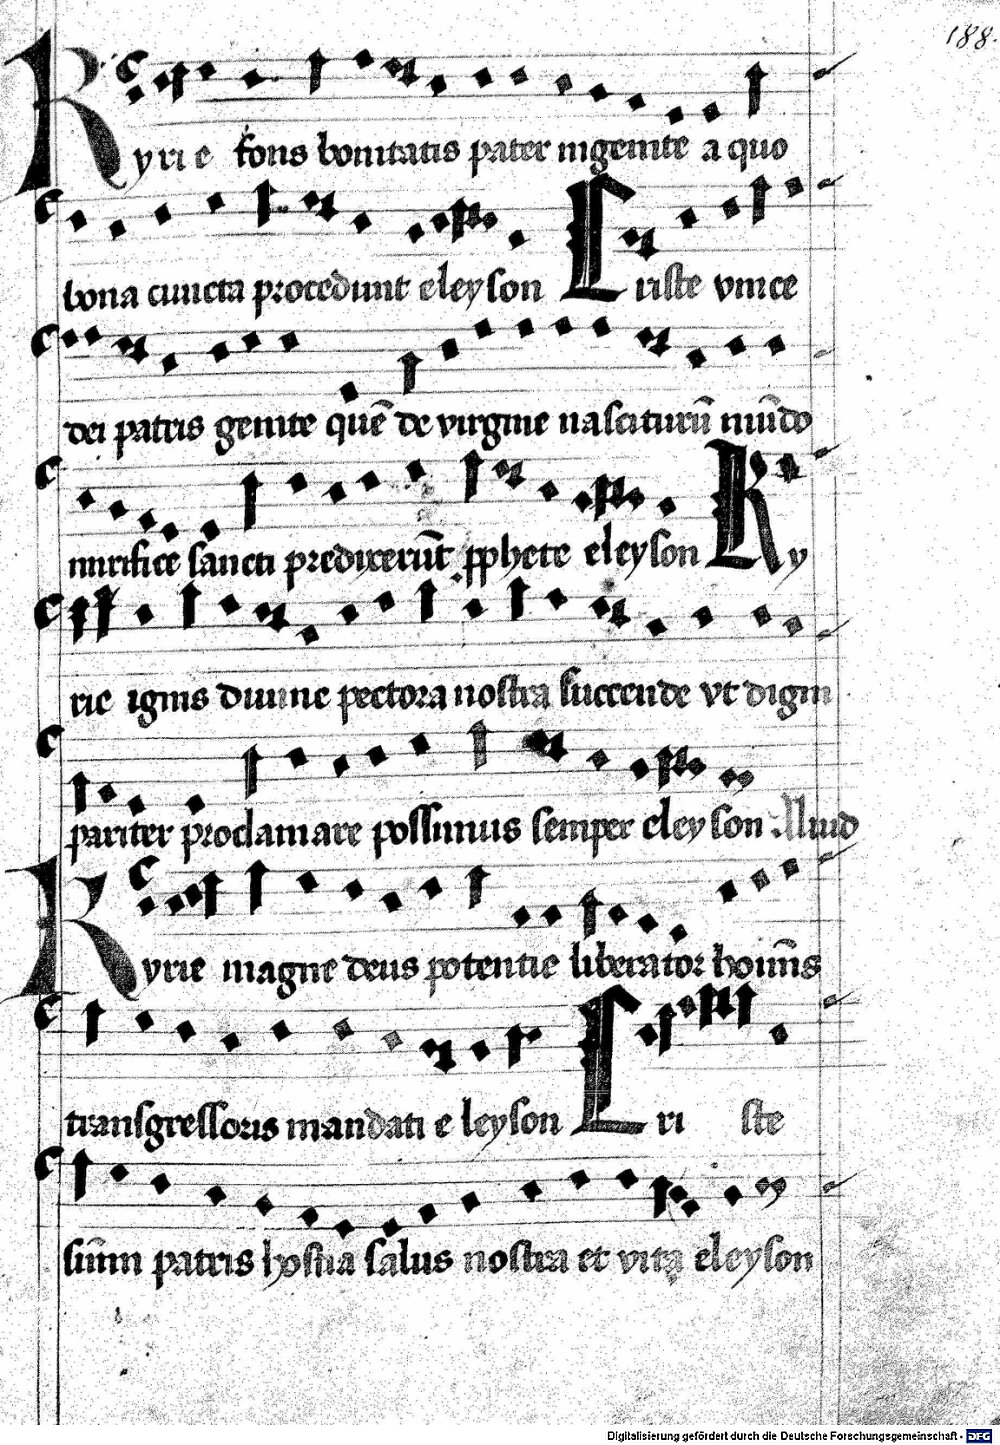 188.
Kyrie fons bonitatis pater ingenite a quo
bona cuncta procedunt eleyson Criste vnice
dei patris genite quē de virgine nasciturū mūdo
mirifice sancti predixerūt pphete eleyson Ky
rie ignis diuine pectora nostra succende vt digni
pariter proclamare possimus semper eleyson . Aliud
Kyrie magne deus potentie liberator homīs
transgressoris mandati e leyson Cri ste
sūmi patris hostia salus nostra et vita eleyson
Digitalisierung gefördert durch die Deutsche Forschungsgemeinschaft - DFG